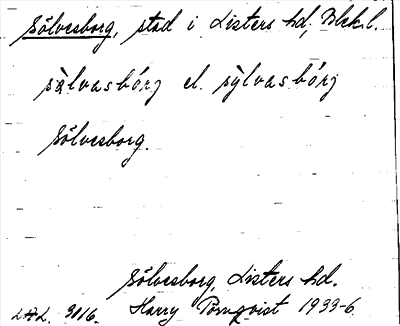 Sölvesborg, stad i Listers hd, Blek.l.
sàlvasbórj el. sỳlvasbórj
Sölvesborg.
Sölvesborg, Listers hd.
LAL. 3016. Harry Törnqvist 1933-6